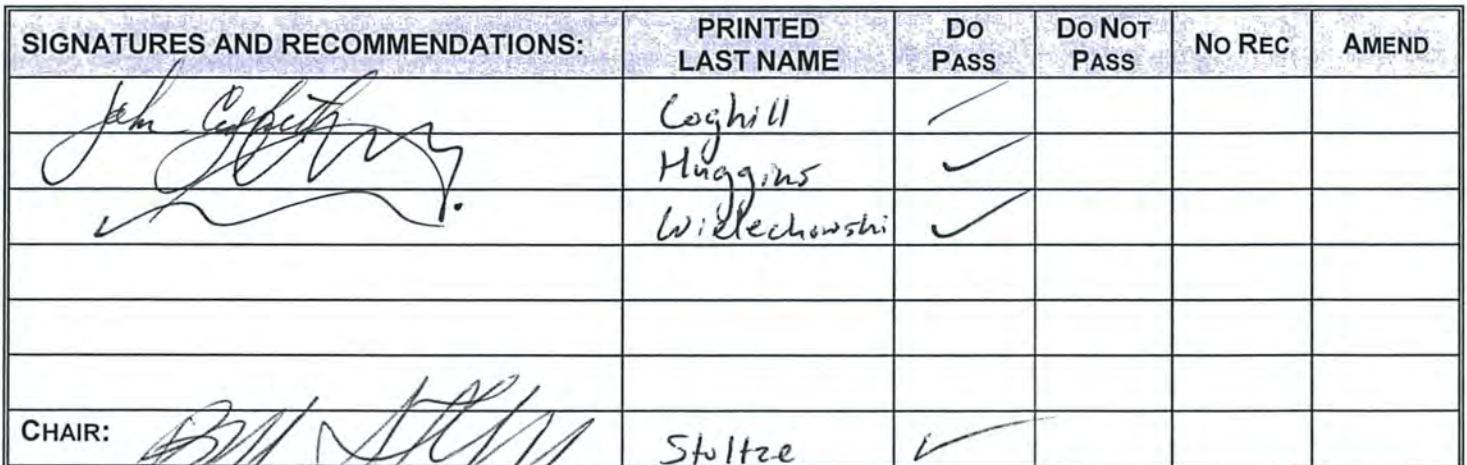 SIGNATURES AND RECOMMENDATIONS: PRINTED LAST NAME DO PASS DO NOT PASS NO REC AMEND
John Coghill Coghill ✓
Huggins ✓
Wielechowski ✓
CHAIR: Stoltze ✓